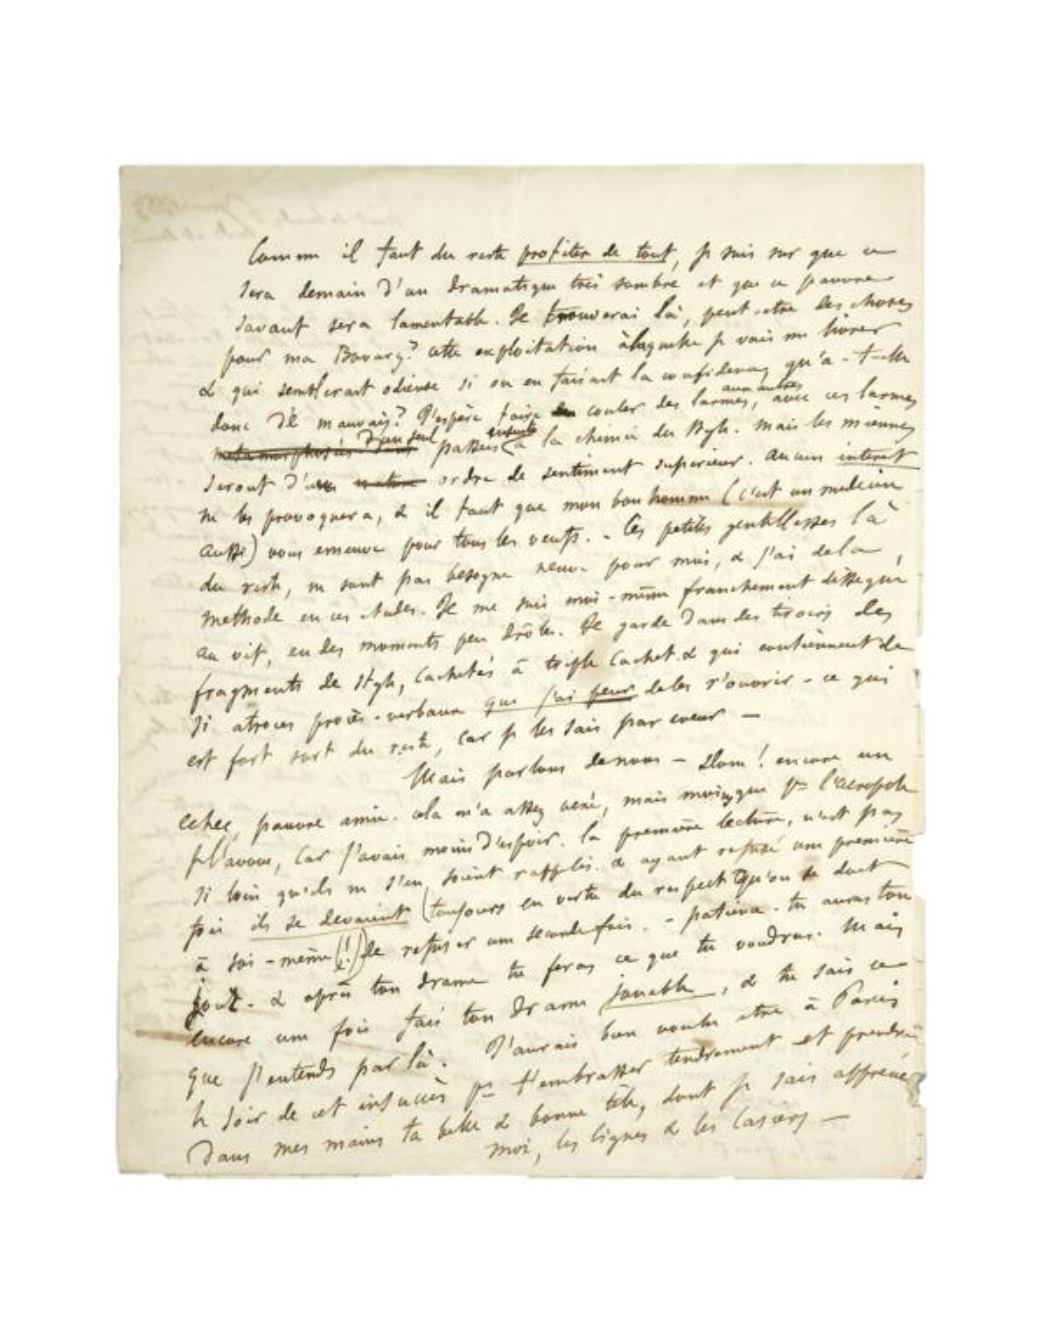 Comme il faut du reste profiter de tout, je suis sur que ce
sera demain d'un dramatique très sombre et que ce pauvre
savant sera lamentable. Je trouverai là, peut-etre des choses
pour ma Bovary? cette exploitation à laquelle je vais me livrer
& qui semblerait odieuse si on en faisait la confidence, qu'a-t-elle
donc de mauvais? J'espère faire couler des larmes, aux autres avec ces larmes
metamorphosés d'un seul passées ensuite à la chimie du Style. Mais les miennes
seront d'un nature ordre de sentiment superieur. Aucun interet
ne les provoquera, & il faut que mon bonhomme (c'est un medecin
aussi) vous emeuve pour tous les veufs. - Ces petites gentillesses là
du reste, ne sont pas besogne neuve pour moi, & j'ai de la
methode en ces études. Je me suis moi-même franchement disséqué
au vif, en des moments peu drôles. Je garde dans des tiroirs des
fragments de Style, cachetés à triple cachet & qui contiennent de
si atroces procès-verbaux que j'ai peur de les r'ouvrir - ce qui
est fort sot du reste, car je les sais par coeur —
Mais parlons de nous - donc! encore un
echec, pauvre amie. cela m'a assez vexé, mais moins que pr l'acropole
je l'avoue, car j'avais moins d'espoir. la première lecture, n'est pas
si loin qu'ils ne s'en soient rappelés. & ayant refusé une première
fois ils se devaient (toujours en vertu du respect qu'on se doit
à soi-même (!) de refuser une seconde fois. - patience. tu auras ton
jour. & après ton drame tu feras ce que tu voudras. Mais
encore une fois fais ton drame jouable, & tu sais ce
que j'entends par là. J'aurais bien voulu etre à Paris
le soir de cet insuccès pr t'embrasser tendrement et prendre
dans mes mains ta belle & bonne tête, dont je sais apprécié
moi, les lignes & les casiers —